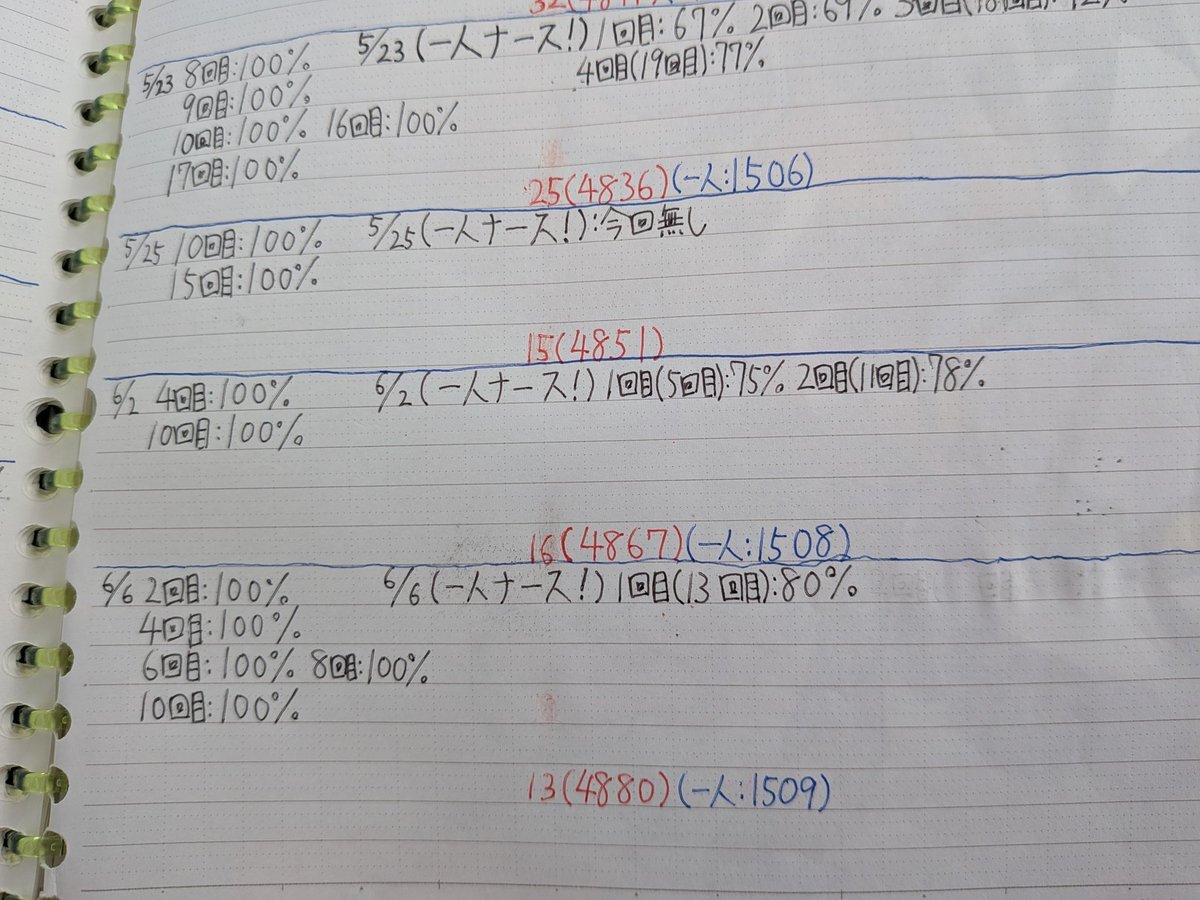 5/23 8回目:100% 5/23(一人ナース!)1回目:67% 2回目:69%
9回目:100% 4回目(19回目):77%
10回目:100% 16回目:100%
17回目:100%
25(4836)(一人:1506)
5/25 10回目:100% 5/25(一人ナース!):今回無し
15回目:100%
15(4851)
6/2 4回目:100% 6/2(一人ナース!)1回目(5回目):75% 2回目(11回目):78%
10回目:100%
16(4867)(一人:1508)
6/6 2回目:100% 6/6(一人ナース!)1回目(13回目):80%
4回目:100%
6回目:100% 8回目:100%
10回目:100%
13(4880)(一人:1509)